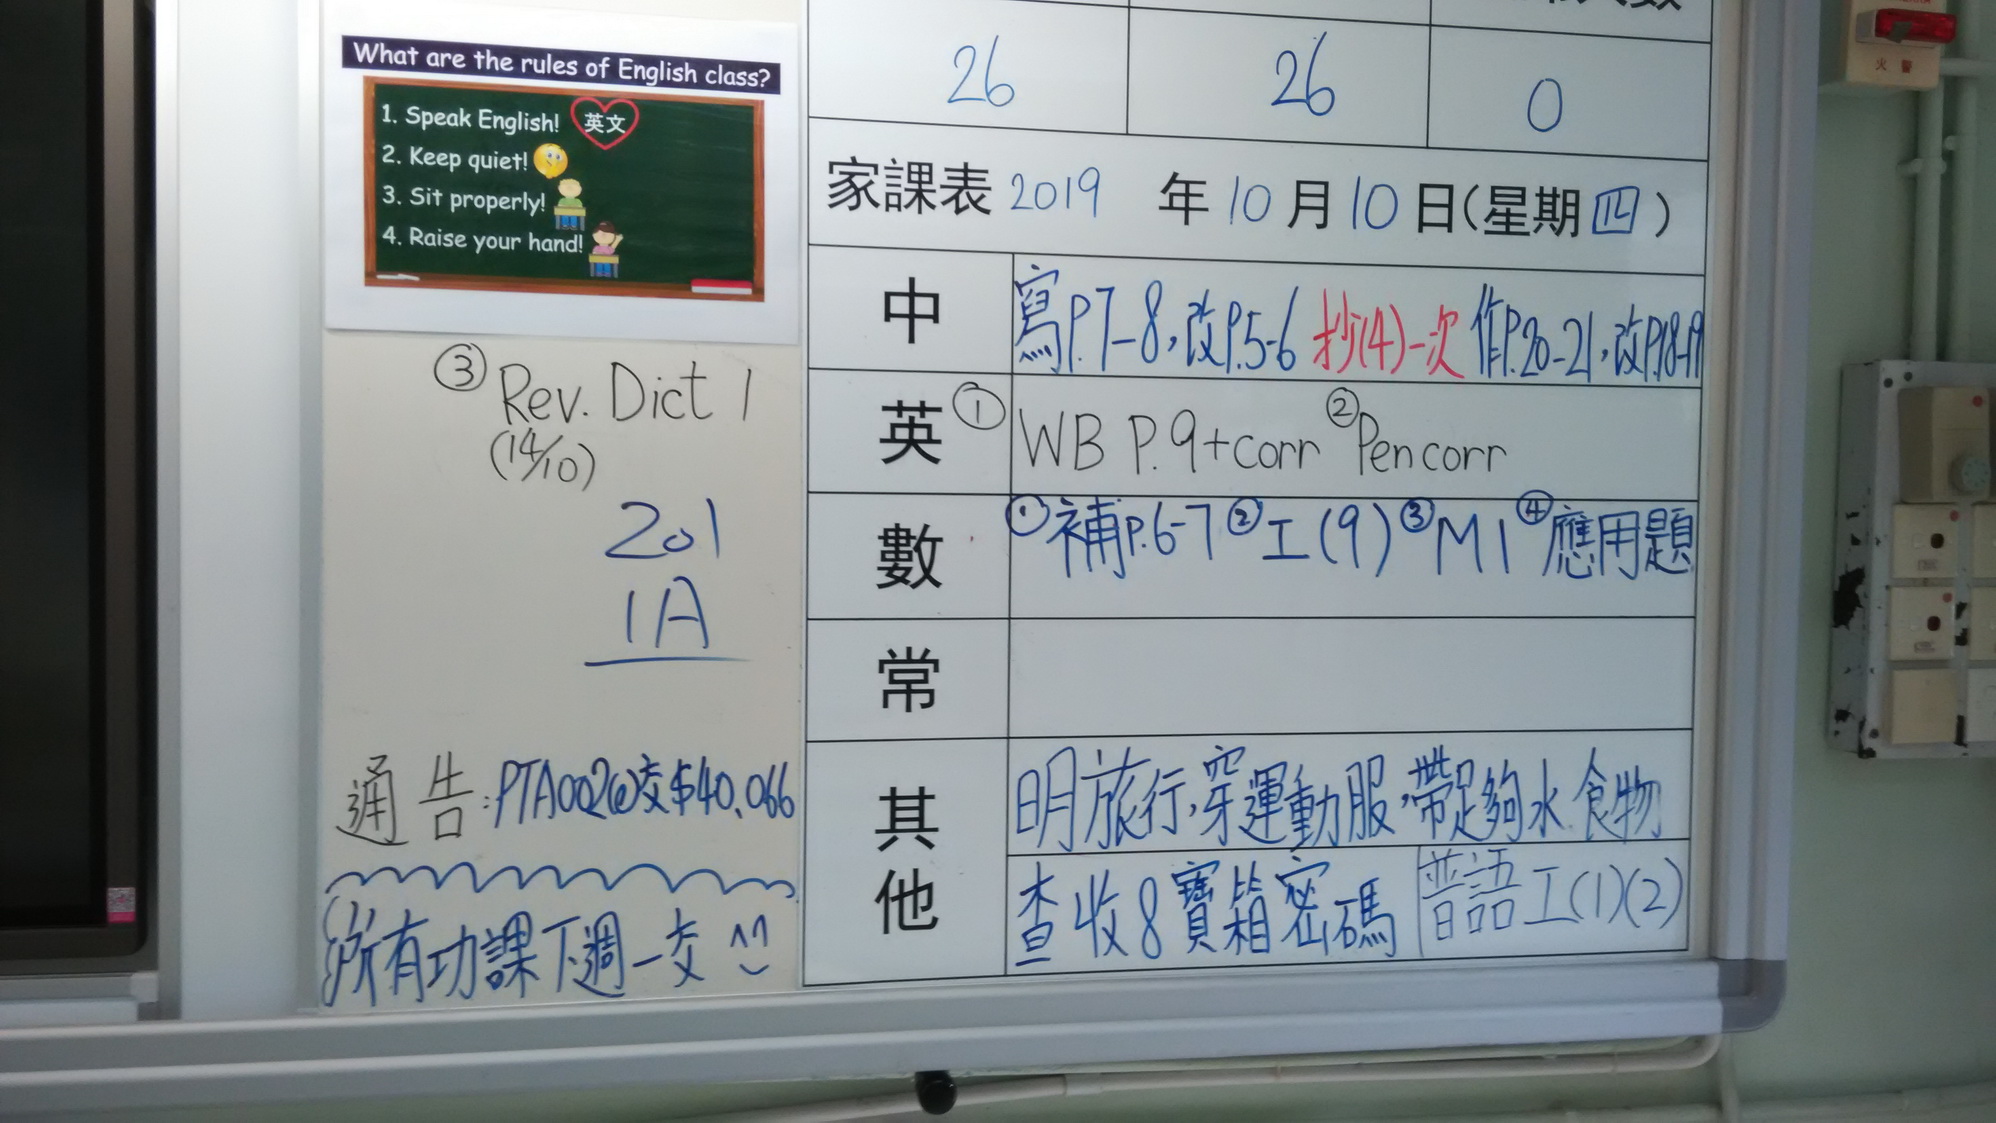 What are the rules of English class?
1. Speak English! 英文
2. Keep quiet!
3. Sit properly!
4. Raise your hand!
26 26 0
家課表 2019 年 10 月 10 日(星期四)
中 寫P.7-8,改P.5-6 抄(4)一次 作P.20-21,改P.18-19
英 ① WB P.9+corr ② Pen corr
③ Rev. Dict 1
(14/10)
數 ①補P.6-7 ②工(9) ③M1 ④應用題
201
1A
常
其他 明旅行,穿運動服,帶足夠水 食物
查收8寶箱密碼 普語工(1)(2)
通告:PTA002@交$40,066
所有功課下週一交
火警